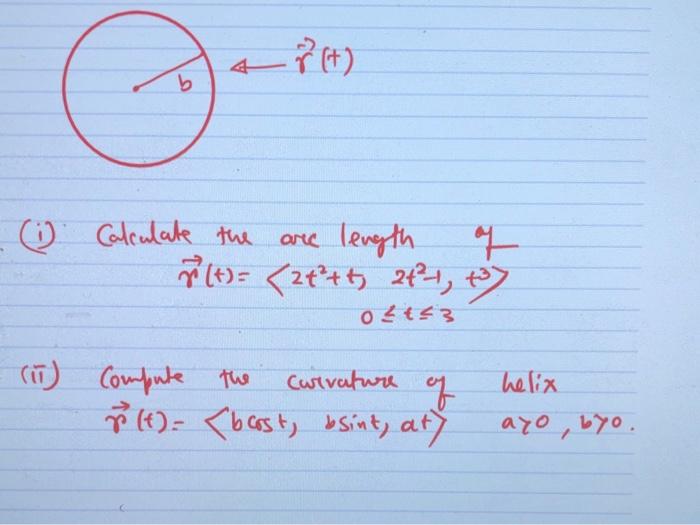 r⃗(t)
b
(i) Calculate the arc length of
r⃗(t) = <2t²+t, 2t²-1, t³>
0 ≤ t ≤ 3
(ii) Compute the curvature of helix
r⃗(t) = <b cos t, b sin t, at> a>0, b>0.